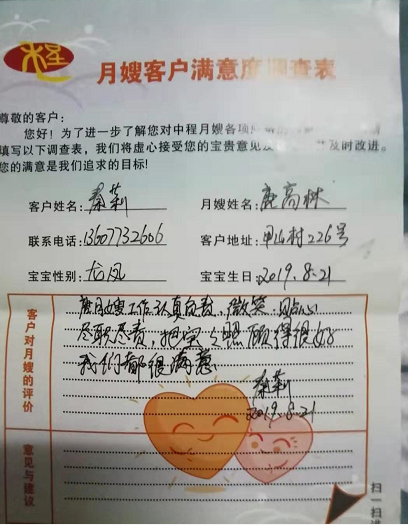 月嫂客户满意度调查表
尊敬的客户：
您好！为了进一步了解您对中程月嫂各项
填写以下调查表，我们将虚心接受您的宝贵意见及 及时改进。
您的满意是我们追求的目标！
客户姓名：秦莉 月嫂姓名：鹿高林
联系电话：13607732606 客户地址：甲山村226号
宝宝性别：龙凤 宝宝生日：2019.8.21
客户对月嫂的评价
鹿月嫂工作认真负责，微笑
尽职尽责，把宝宝照顾得很好
我们都很满意
秦莉
2019.8.21
意见与建议
扫一扫